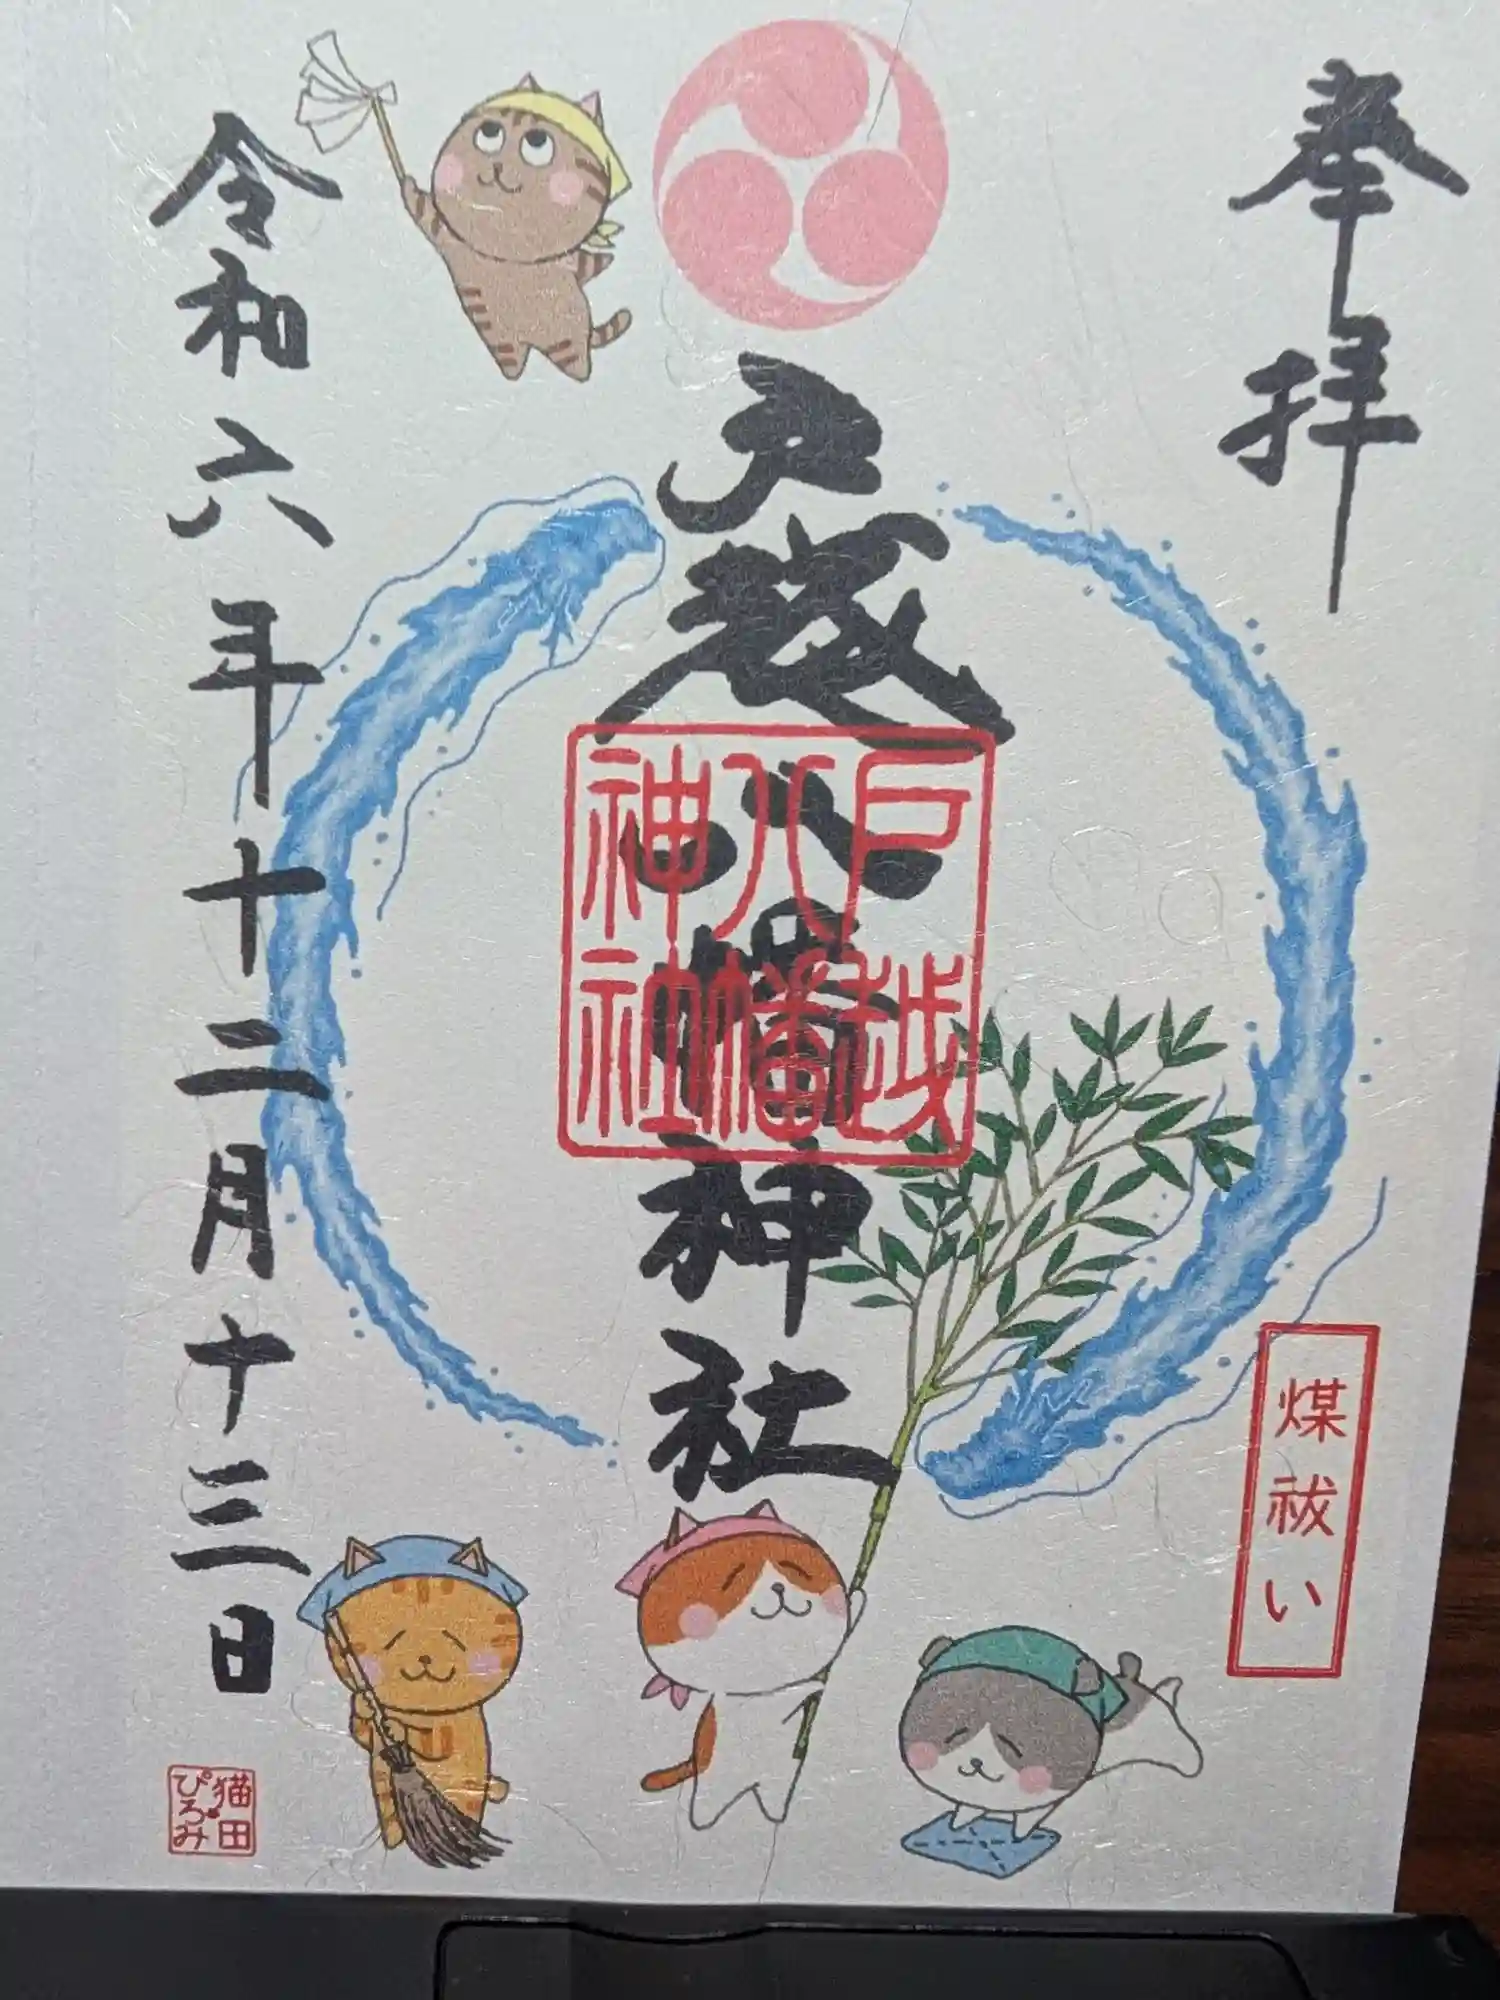 奉拝
戸越八幡神社
戸越
八幡
神社
令和六年十二月十三日
煤祓い
猫田
ぴろみ